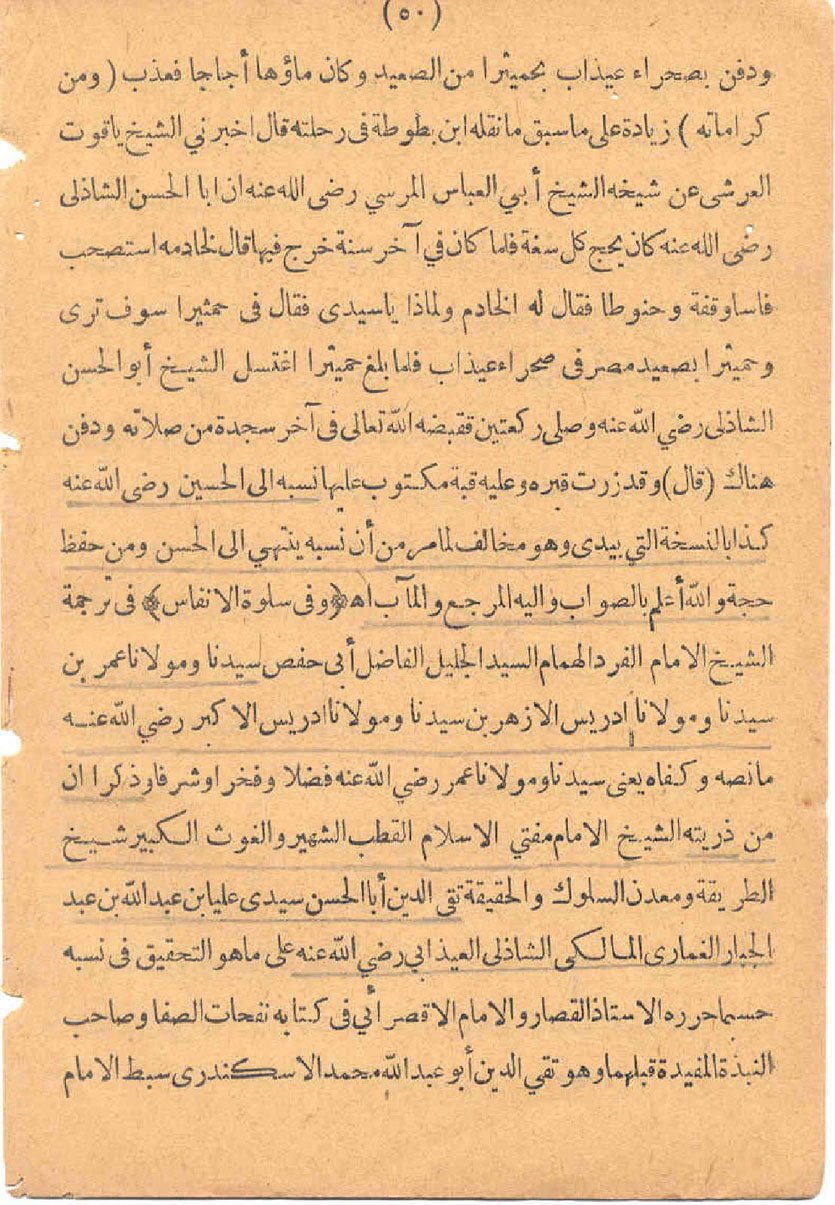 (٥٠)
ودفن بصحراء عيذاب بحميثرا من الصعيد وكان ماؤها أجاجا فعذب ( ومن
كراماته ) زيادة على ماسبق مانقله ابن بطوطة فى رحلته قال اخبرني الشيخ ياقوت
العرشى عن شيخه الشيخ أبي العباس المرسي رضى الله عنه ان ابا الحسن الشاذلى
رضى الله عنه كان يحج كل سغة فلما كان في آخر سنة خرج فيها قال لخادمه استصحب
فاسا وقفة وحنوطا فقال له الخادم ولماذا ياسيدى فقال فى حمثيرا سوف ترى
وحميثرا بصعيد مصر فى صحراء عيذاب فلما بلغ حميثرا اغتسل الشيخ أبو الحسن
الشاذلى رضي الله عنه وصلى ركعتين فقبضه الله تعالى فى آخر سجدة من صلاته ودفن
هناك (قال) وقد زرت قبره وعليه قبة مكتوب عليها نسبه الى الحسين رضى الله عنه
كذا بالنسخة التي بيدى وهو مخالف لما مر من أن نسبه ينتهي الى الحسن ومن حفظ
حجة والله أعلم بالصواب واليه المرجع والمآب اه ﴿وفى سلوة الانفاس﴾ فى ترجمة
الشيخ الامام الفرد الهمام السيد الجليل الفاضل أبى حفص سيدنا ومولانا عمر بن
سيدنا ومولانا ادريس الازهر بن سيدنا ومولانا ادريس الاكبر رضي الله عنه
مانصه وكفاه يعنى سيدنا ومولانا عمر رضي الله عنه فضلا وفخرا وشرفا وذكرا ان
من ذريته الشيخ الامام مفتي الاسلام القطب الشهير والغوث الكبير شيخ
الطريقة ومعدن السلوك والحقيقة تقى الدين أبا الحسن سيدى عليا بن عبد الله بن عبد
الجبار الغمارى المالكى الشاذلى العيذابي رضي الله عنه على ماهو التحقيق فى نسبه
حسبما حرره الاستاذ القصار والامام الاقصرأبي فى كتابه نفحات الصفا وصاحب
النبذة المفيدة قبلهما وهو تقي الدين أبو عبد الله محمد الاسكندرى سبط الامام